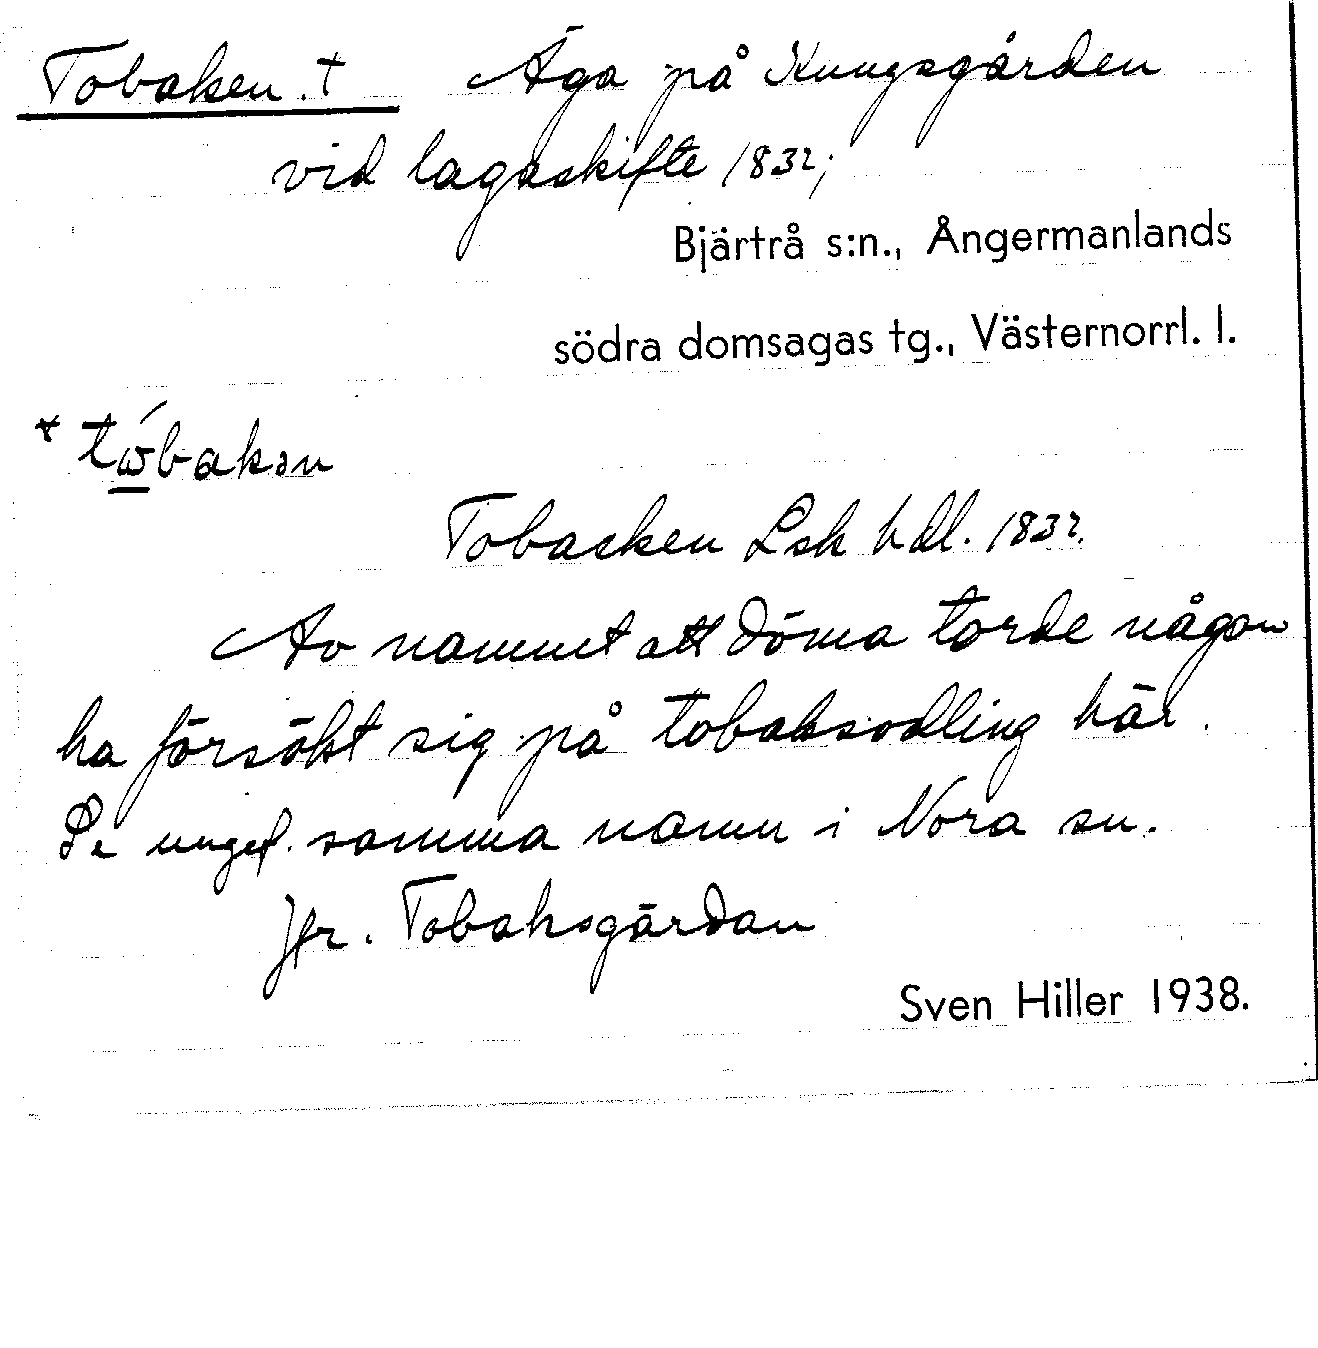 Tobaken.† Äga på Kungsgården
vid lagaskifte 1832;
Bjärtrå s:n., Ångermanlands
södra domsagas tg., Västernorrl. l.
* tώbakən
Tobacken Lsk hdl. 1832.
Av namnet att döma torde någon
ha försökt sig på tobaksodling här.
Se ungef. samma namn i Nora sn.
Jfr. Tobaksgärdan
Sven Hiller 1938.